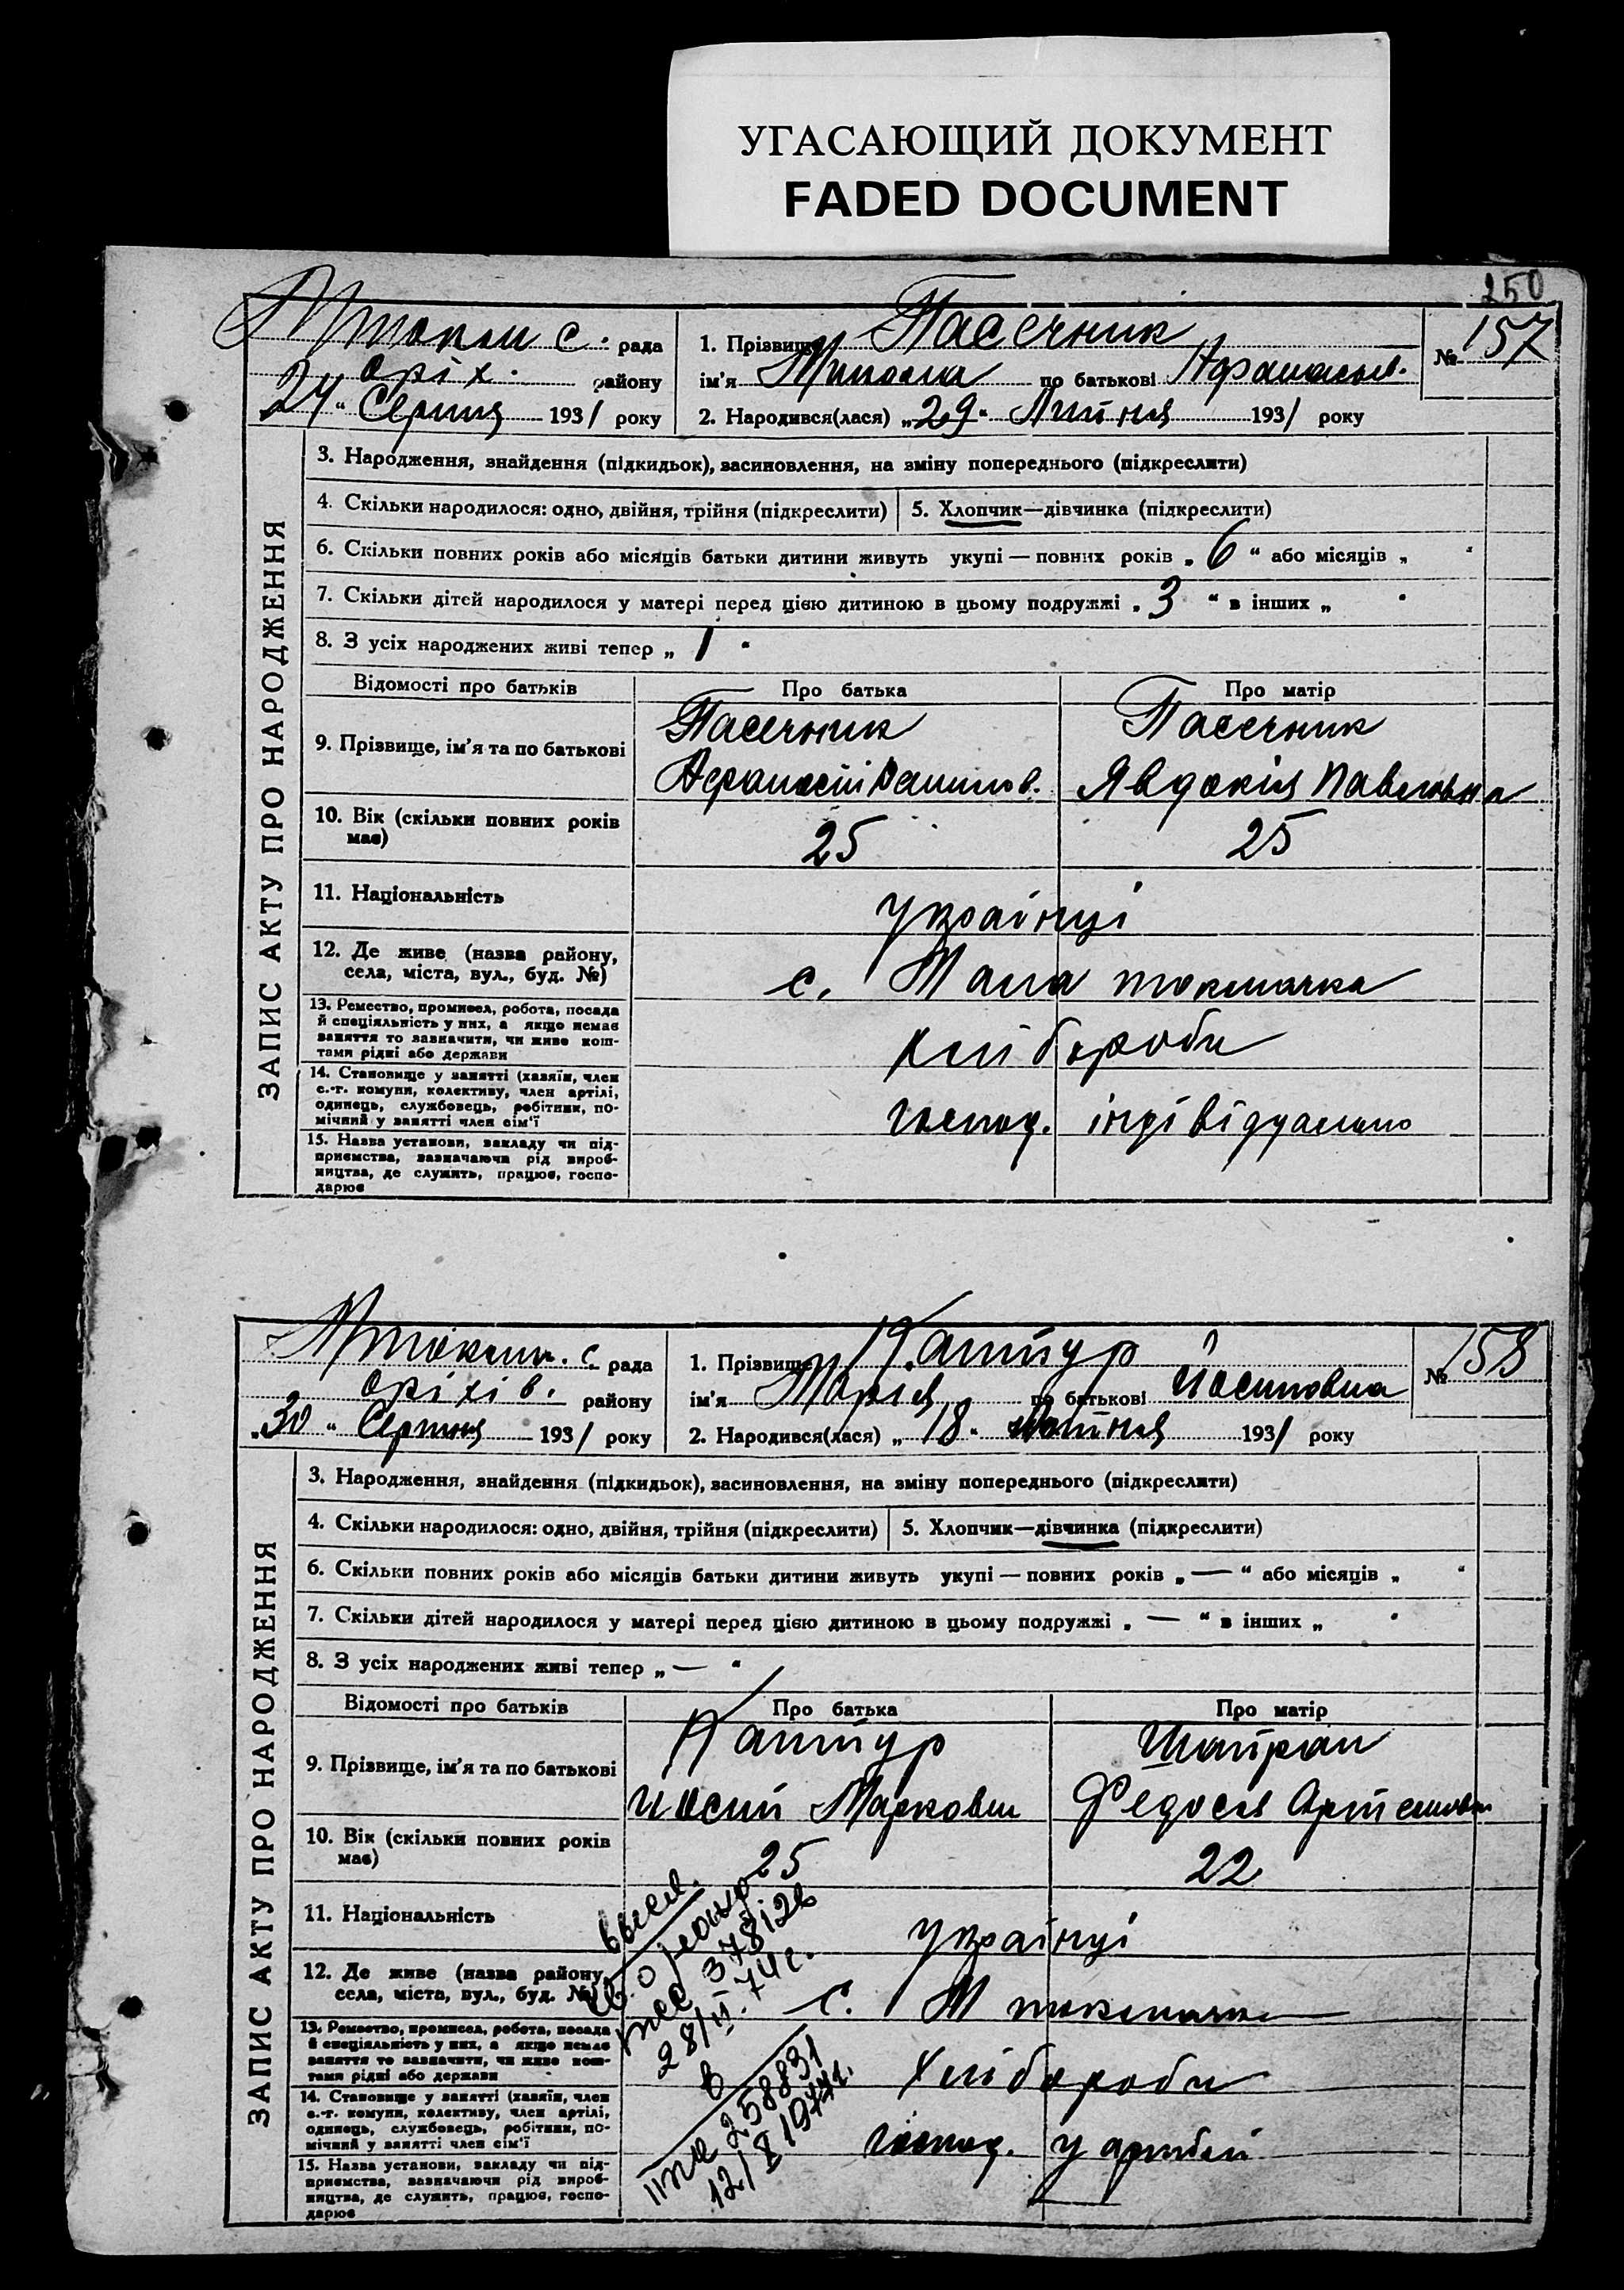 УГАСАЮЩИЙ ДОКУМЕНТ
FADED DOCUMENT
250
ЗАПИС АКТУ ПРО НАРОДЖЕННЯ
с. рада
Оріх. району
24 " Серпня 1931 року
1. Прізвище Пасечник
ім'я Микола по батькові Афанасьев.
2. Народився(лася) „ 29 " Липня 1931 року
№ 157
3. Народження, знайдення (підкидьок), засиновлення, на зміну попереднього (підкреслити)
4. Скільки народилося: одно, двійня, трійня (підкреслити)
5. Хлопчик—дівчинка (підкреслити)
6. Скільки повних років або місяців батьки дитини живуть укупі — повних років „ 6 " або місяців „ "
7. Скільки дітей народилося у матері перед цією дитиною в цьому подружжі „ 3 " в інших „ "
8. З усіх народжених живі тепер „ 1 "
Відомості про батьків
Про батька
Про матір
9. Прізвище, ім'я та по батькові
Пасечник
Афанасій Данилов.
Пасечник
Явдокія Павловна
10. Вік (скільки повних років
має)
25
25
11. Національність
українці
12. Де живе (назва району,
села, міста, вул., буд. №)
с. Мала токмачка
13. Ремество, промисел, робота, посада
й спеціяльність у них, а якщо немає
заняття то зазначити, чи живе кош-
тами рідні або держави
хлібороби
14. Становище у занятті (хазяїн, член
с.-г. комуни, колективу, член артілі,
одинець, службовець, робітник, по-
мічний у занятті член сім'ї
господ. індівідуально
15. Назва установи, закладу чи під-
приємства, зазначаючи рід вироб-
ництва, де служить, працює, госпо-
дарює
ЗАПИС АКТУ ПРО НАРОДЖЕННЯ
с. рада
Оріхів. району
„ 30 " Серпня 1931 року
1. Прізвище
ім'я Марія по батькові Йосиповна
2. Народився(лася) „ 18 " 1931 року
№ 158
3. Народження, знайдення (підкидьок), засиновлення, на зміну попереднього (підкреслити)
4. Скільки народилося: одно, двійня, трійня (підкреслити)
5. Хлопчик—дівчинка (підкреслити)
6. Скільки повних років або місяців батьки дитини живуть укупі — повних років „ — " або місяців „ "
7. Скільки дітей народилося у матері перед цією дитиною в цьому подружжі „ — " в інших „ "
8. З усіх народжених живі тепер „ — "
Відомості про батьків
Про батька
Про матір
9. Прізвище, ім'я та по батькові
Йосип Маркович
Федосья Артемовн
10. Вік (скільки повних років
має)
25
22
11. Національність
українці
12. Де живе (назва району,
села, міста, вул., буд. №)
с. М токмачка
13. Ремество, промисел, робота, посада
й спеціяльність у них, а якщо немає
заняття то зазначити, чи живе кош-
тами рідні або держави
хлібороби
14. Становище у занятті (хазяїн, член
с.-г. комуни, колективу, член артілі,
одинець, службовець, робітник, по-
мічний у занятті член сім'ї
господ. у артілі
15. Назва установи, закладу чи під-
приємства, зазначаючи рід вироб-
ництва, де служить, працює, госпо-
дарює
св. о рожд.
378126
74 г.
258831